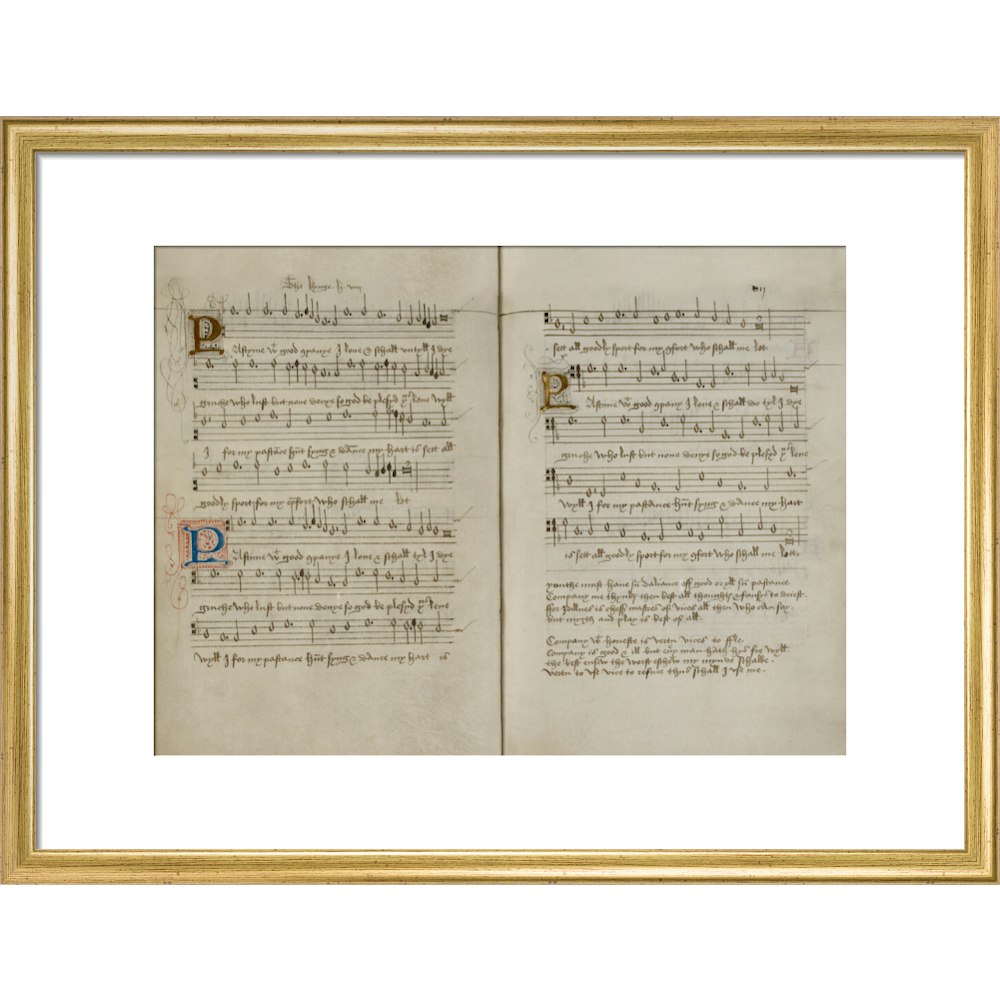 The kynge .h. viij
Pastyme wt good ꝯpanye I loue & schall vntyll I dye
gruche who lust but none denye so god be plesyd þus loue wyll
I for my pastāce hūt syng & dāce my hart is sett all
goodly sport for my ꝯfort who schall me let
Pastyme wt good ꝯpanye I loue & schall tyl I dye
gruche who lust but none denye so god be plesyd þus leue
wyll I for my pastance hūt syng & dance my hart is
sett all goodly sport for my ꝯfort who schall me let
Pastyme wt good ꝯpany I loue & schall do tyl I dye
gruche who lust but none denye so god be plesyd þus leue
wyll I for my pastance hūt syng & dance my hart
is sett all goodly sport for my ꝯfort who schall me lett.
youthe must haue sū daliance off good or yll sū pastance
Company me thynks then best all thoughts & fansys to deiest.
ffor Idillnes is cheff mastres of vices all then who can say.
but myrth and play is best of all.
Company wt honeste is vertu vices to ffle
Company is good & ill but eūy man hath hys fre wyll
the best ensew the worst eschew my mynde schalbe.
vertu to vse vice to refuce thus schall I vse me.